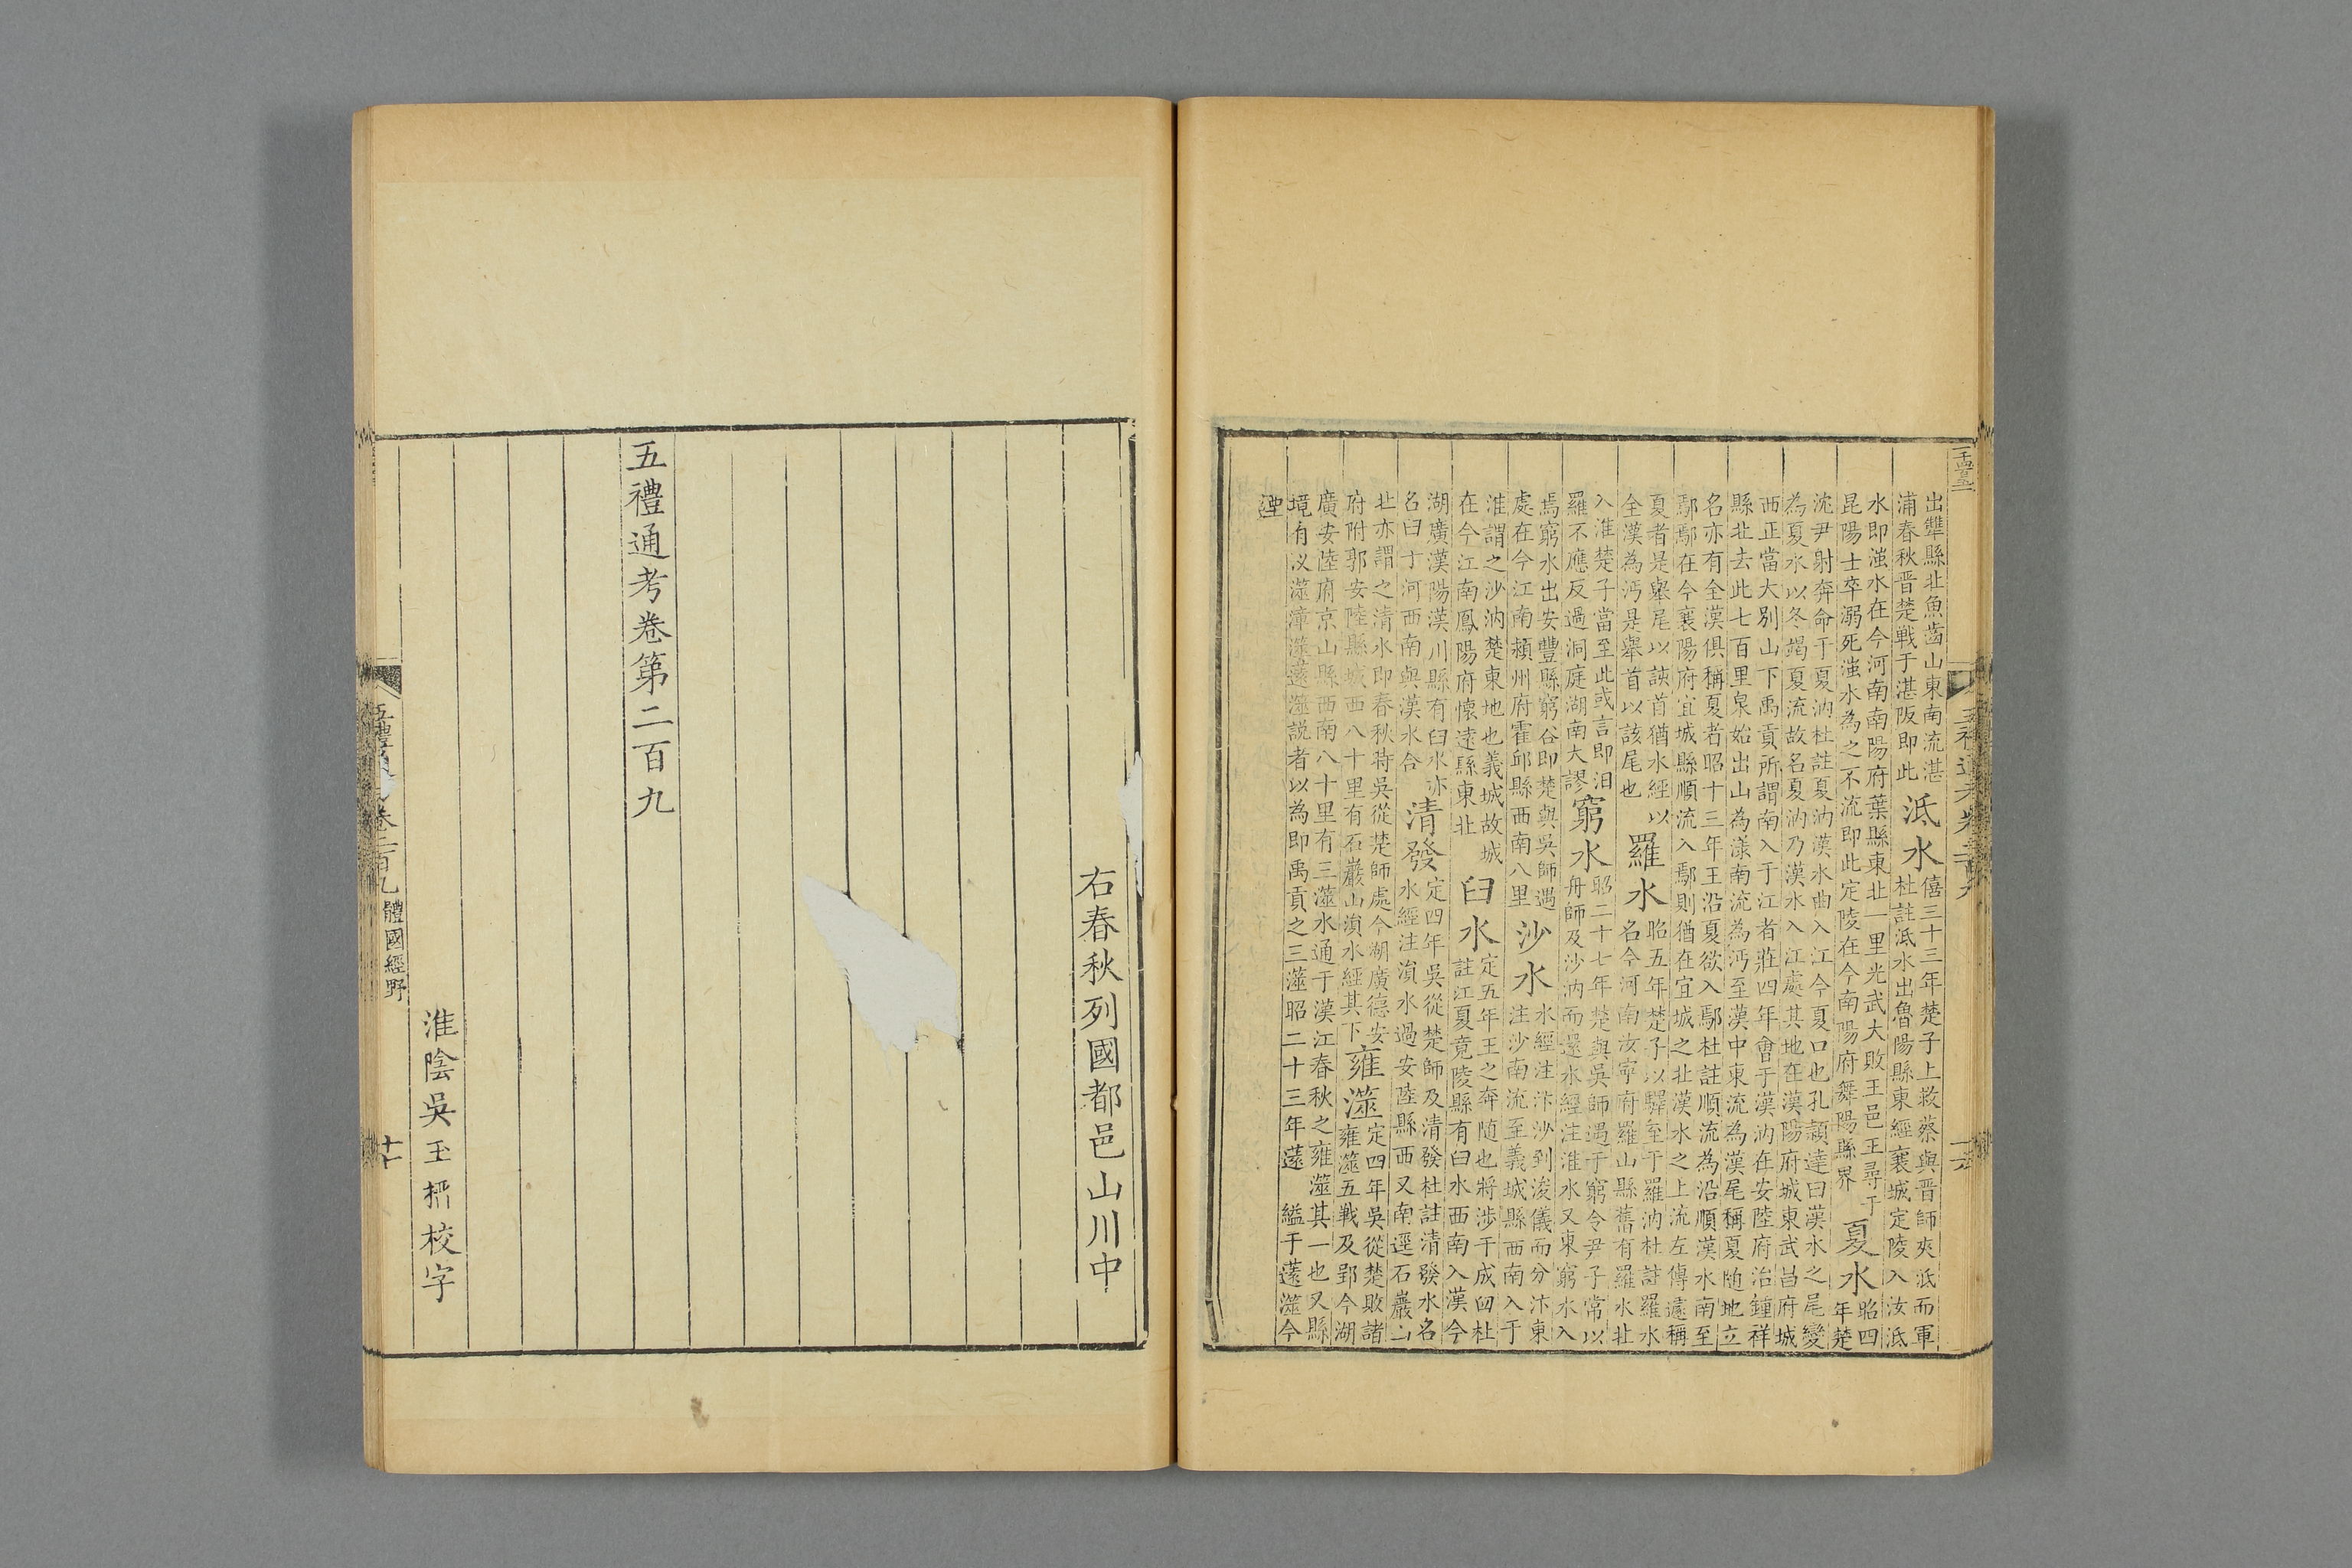 出犨縣北魚齒山東南流湛
浦春秋晋楚戰于湛阪即此
泜水
僖三十三年楚子上救蔡與晋師夾泜而軍
杜註泜水出魯陽縣東經襄城定陵入汝泜
水即滍水在今河南南陽府葉縣東北一里光武大敗王邑王尋于
昆陽士卒溺死滍水為之不流即此定陵在今南陽府舞陽縣界
夏水
昭四
年楚
沈尹射奔命于夏汭杜註夏汭漢水曲入江今夏口也孔頴達曰漢水之尾變
為夏水以冬竭夏流故名夏汭乃漢水入江處其地在漢陽府城東武昌府城
西正當大别山下禹貢所謂南入于江者莊四年會于漢汭在安陸府治鍾祥
縣北去此七百里泉始出山為漾南流為沔至漢中東流為漢尾稱夏随地立
名亦有全漢俱稱夏者昭十三年王沿夏欲入鄢杜註順流為沿順漢水南至
鄢鄢在今襄陽府宜城縣順流入鄢則猶在宜城之北漢水之上流左傳遽稱
夏者是舉尾以該首猶水經以
全漢為沔是舉首以該尾也
羅水
昭五年楚子以馹至于羅汭杜註羅水
名今河南汝寧府羅山縣舊有羅水北
入淮楚子當至此或言即汨
羅不應反過洞庭湖南大謬
窮水
昭二十七年楚與吳師遇于窮令尹子常以
舟師及沙汭而還水經注淮水又東窮水入
焉窮水出安豐縣窮谷即楚與吳師遇
處在今江南潁州府霍邱縣西南八里
沙水
水經注汴沙到浚儀而分汴東
注沙南流至義城縣西南入于
淮謂之沙汭楚東地也義城故城
在今江南鳳陽府懷遠縣東北
臼水
定五年王之奔随也將涉于成臼杜
註江夏竟陵縣有臼水西南入漢今
湖廣漢陽漢川縣有臼水亦
名曰十河西南與漢水合
清發
定四年吳從楚師及清發杜註清發水名
水經注溳水過安陸縣西又南逕石巖山
北亦謂之清水即春秋時吳從楚師處今湖廣德安
府附郭安陸縣城西八十里有石巖山溳水經其下
雍澨
定四年吳從楚敗諸
雍澨五戰及郢今湖
廣安陸府京山縣西南八十里有三澨水通于漢江春秋之雍澨其一也又縣
境有汊澨漳澨薳澨説者以為即禹貢之三澨昭二十三年薳 縊于薳澨今
湮
右春秋列國都邑山川中
五禮通考卷第二百九
淮陰吳玉搢校字
體國經野
十七